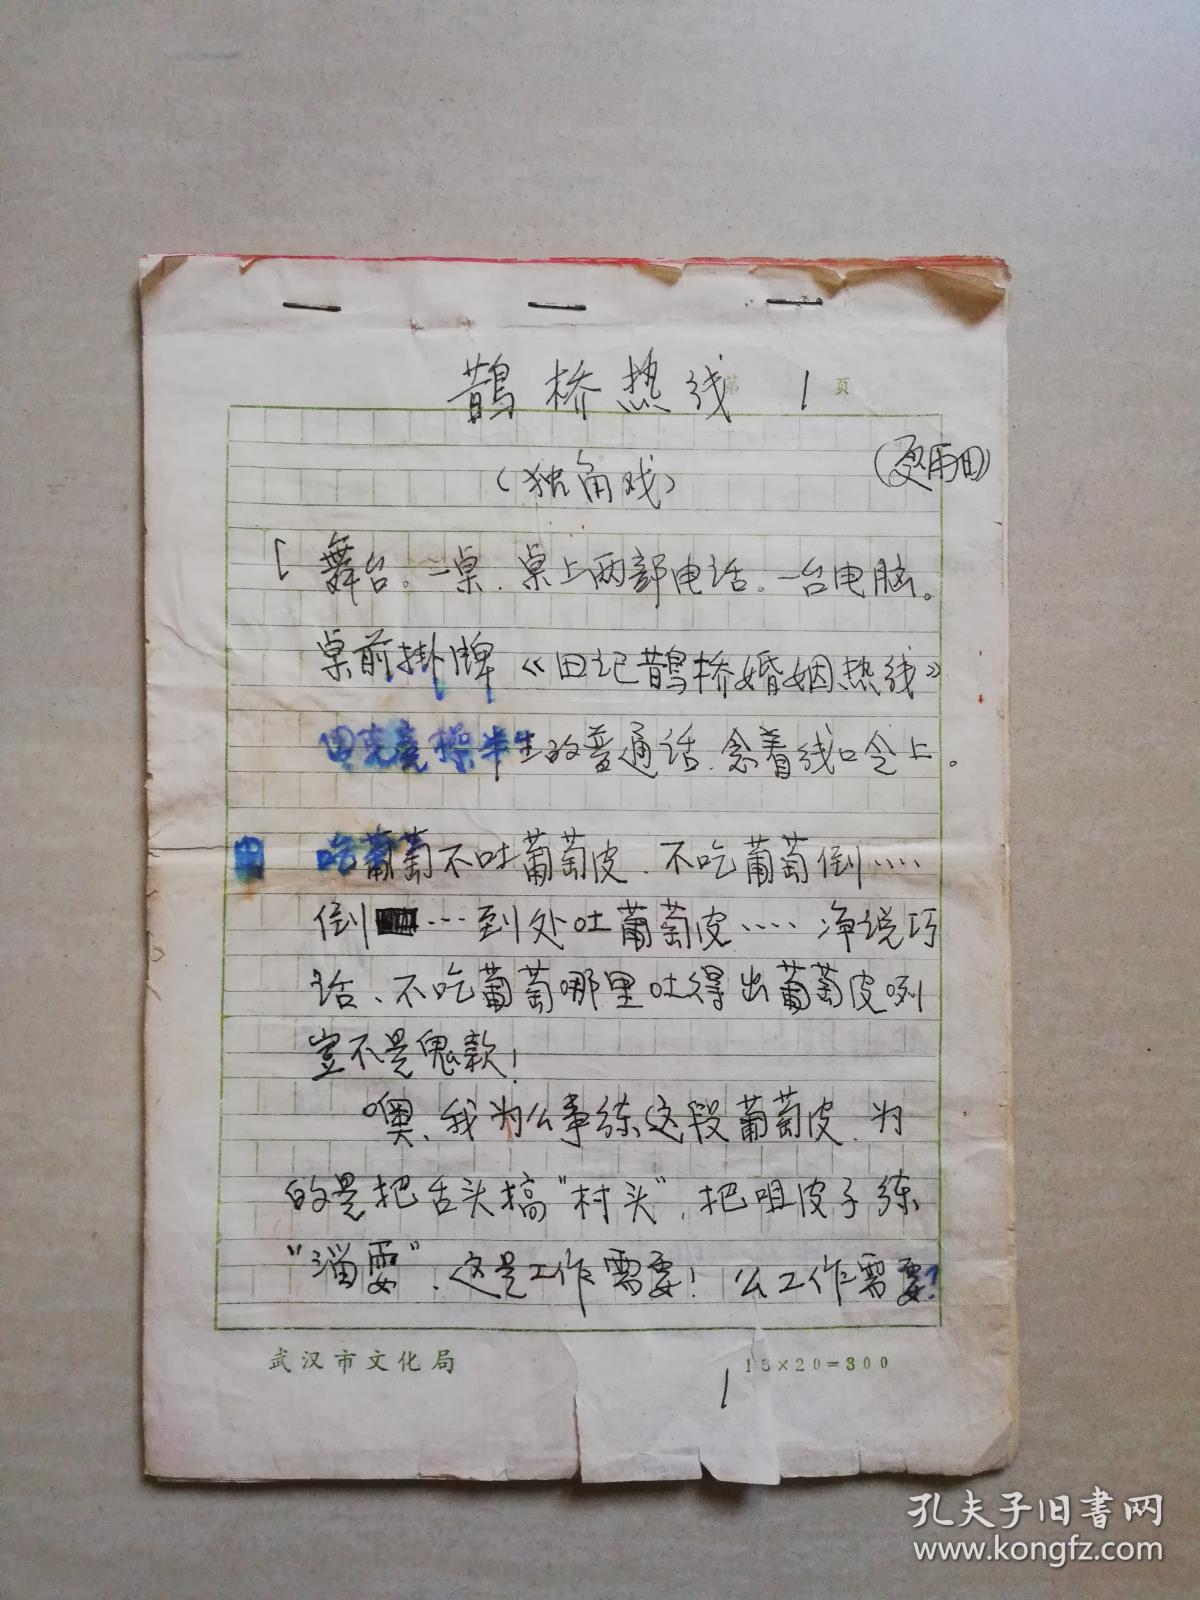 鹊桥热线
第 1 页
(独角戏)
(夏雨田)
[舞台。一桌.桌上两部电话。一台电脑。
桌前掛牌《田记鹊桥婚姻热线》
田克兢操半生的普通话.念着绕口令上。
田 吃葡萄不吐葡萄皮.不吃葡萄倒……
倒…到处吐葡萄皮……净说巧
话、不吃葡萄哪里吐得出葡萄皮咧
岂不是鬼款!
噢、我为么事练这段葡萄皮.为
的是把舌头搞"村头".把咀皮子练
"溜耍".这是工作需要!么工作需要?
武汉市文化局
15×20=300
1
孔夫子旧书网
www.kongfz.com